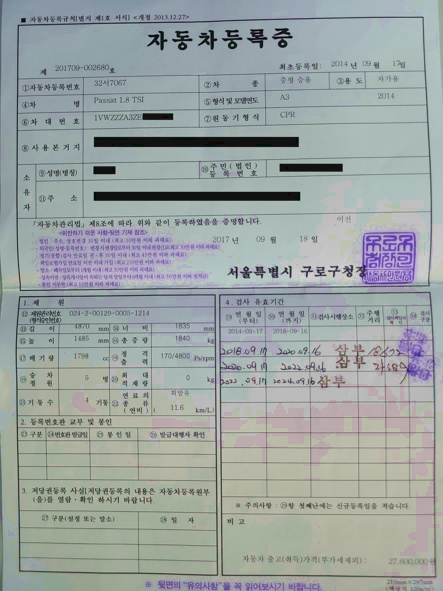 ■ 자동차등록규칙[별지 제1호 서식] <개정 2013.12.27>
자동차등록증
제 201709-002680호 최초등록일: 2014년 09월 17일
①자동차등록번호 32서7067 ②차 종 중형 승용 ③용도 자가용
④차 명 Passat 1.8 TSI ⑤형식 및 모델연도 A3 2014
⑥차 대 번 호 1VWZZZA3ZE ⑦원 동 기 형 식 CPR
⑧ 사 용 본 거 지
소유자 ⑨성명(명칭) ⑩주민(법인)등록번호
⑪주 소
「자동차관리법」 제8조에 따라 위와 같이 등록하였음을 증명합니다.
이전
2017 년 09 월 18 일
서울특별시 구로구청장
1. 제 원
⑫제원관리번호(형식승인번호) 024-2-00129-0005-1214
⑬길 이 4870 mm ⑭너 비 1835 mm
⑮높 이 1485 mm ⑯총 중 량 1840 kg
⑰배 기 량 1798 cc ⑱정격출력 170/4800 Ps/rpm
⑲승차정원 5 명 ⑳최대적재량 0 kg
㉑기 통 수 4 기통 ㉒연료의 종류(연비) 휘발유 11.6 km/L)
2. 등록번호판 교부 및 봉인
㉓구분 ㉔번호판 발급일 ㉕봉 인 일 ㉖발급대행자 확인
3. 저당권등록 사실(저당권등록의 내용은 자동차등록원부(을)를 열람·확인 하시기 바랍니다.
㉗구분(설정 또는 말소) ㉘일 자
4. 검사 유효기간
㉙연 월 일(부터) ㉚연 월 일(까지) ㉛검사시행장소 ㉜주행거리 ㉞검사구분
2014-09-17 2018-09-16
2018.09.17 2020.09.16 삼부
2020.09.17 2022.09.16 삼부
2022.09.17 2024.09.16 삼부
※ 주의사항: ㉙항 첫째란에는 신규등록일을 적습니다.
비 고
자동차 출고(취득)가격(부가세제외): 27,600,000원
※ 뒷면의 "유의사항"을 꼭 읽어보시기 바랍니다.
210mm×297mm